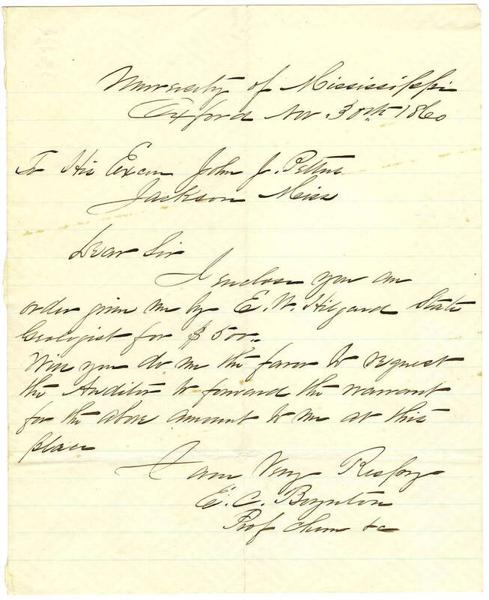 University of Mississippi
Oxford Nov. 30th 1860
To His Excen John J. Pettus
Jackson Miss
Dear Sir
I enclose you an
order given me by E. W. Hilgard State
Geologist for $500.
Will you do me the favor to request
the Auditor to forward the warrant
for the above amount to me at this
place
I am Very Respy
E. C. Boynton
Prof Chem &c